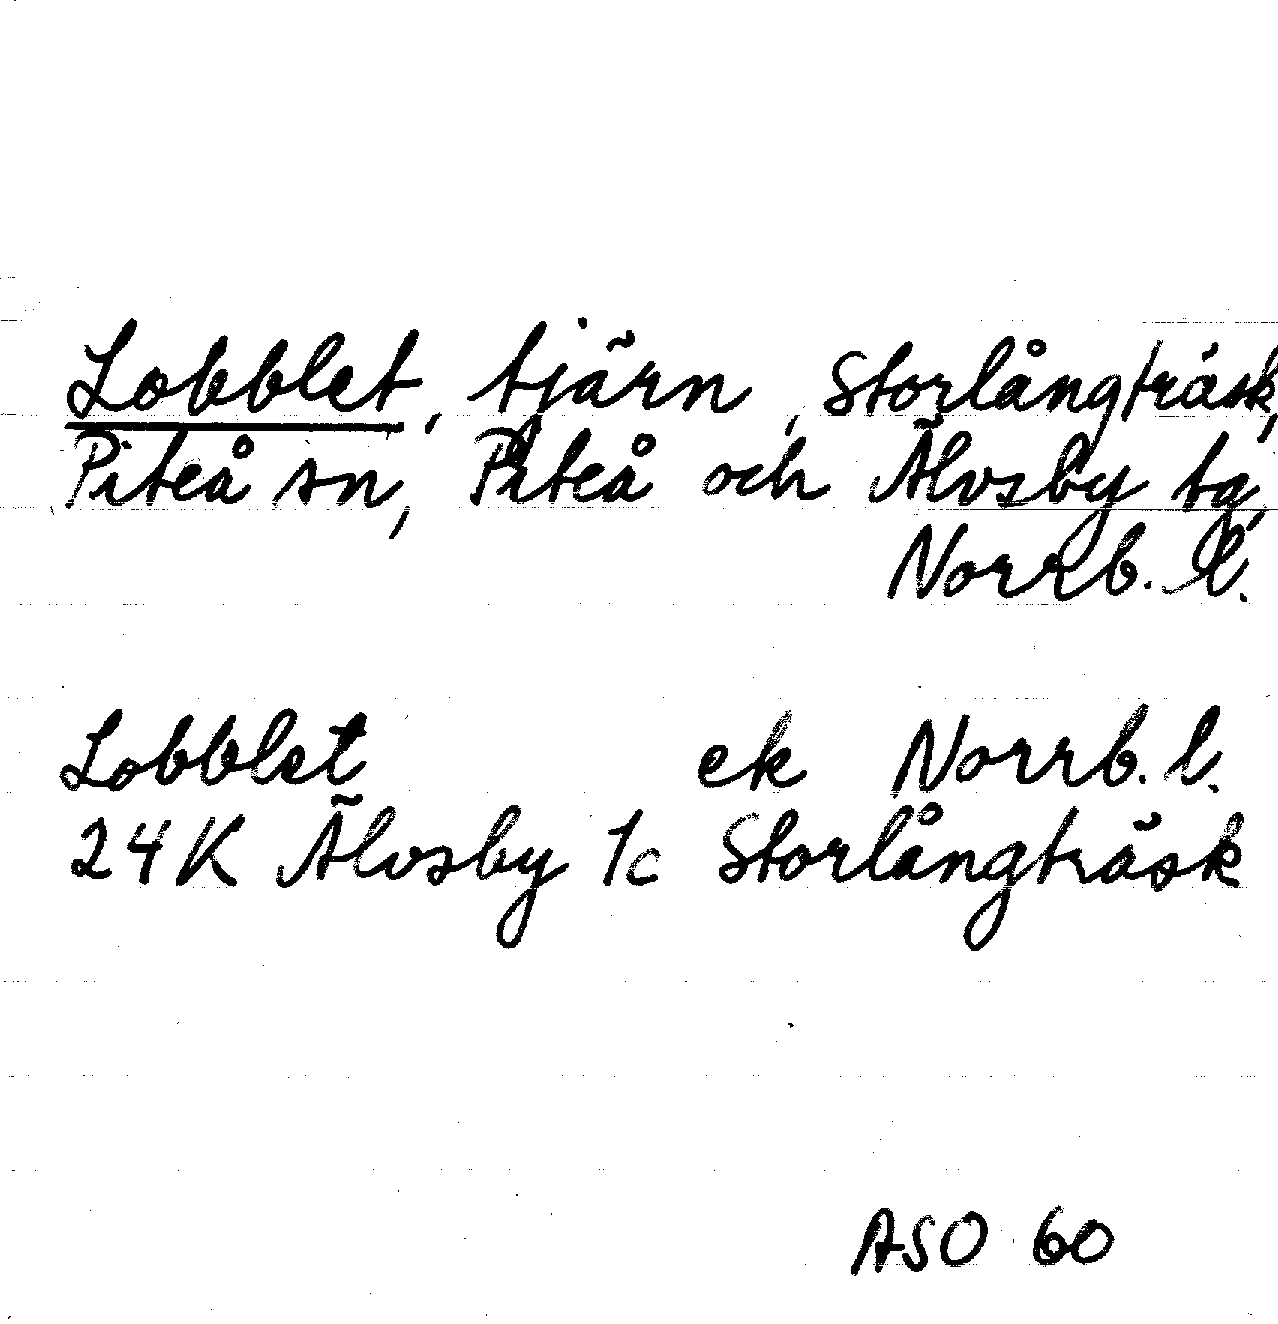 Lobblet, tjärn, Storlångträsk,
Piteå sn, Piteå och Älvsby tg,
Norrb. l.
Lobblet ek Norrb. l.
24K Älvsby 1c Storlångträsk
ASO 60